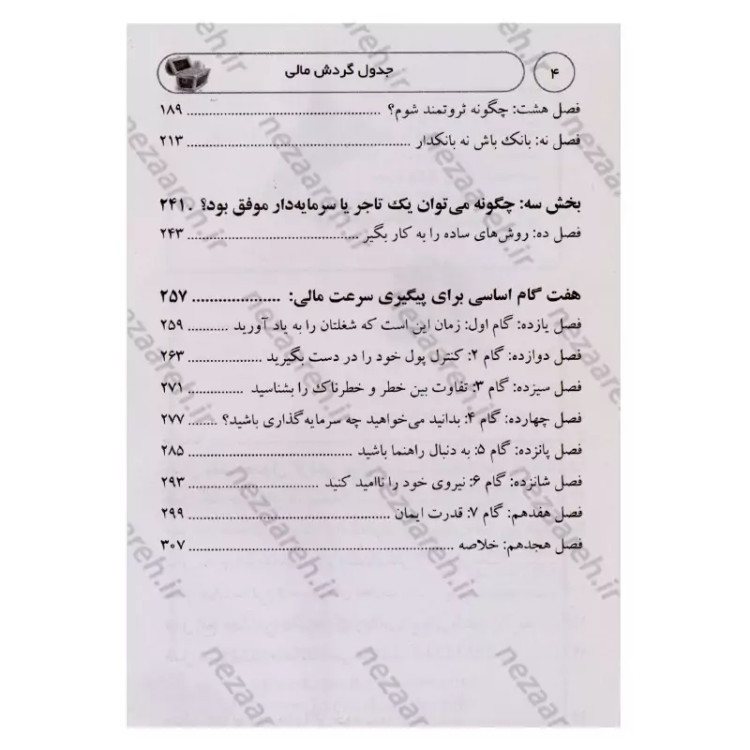 ۴
جدول گردش مالی
فصل هشت: چگونه ثروتمند شوم؟ ........................................ ۱۸۹
فصل نه: بانک باش نه بانکدار ........................................ ۲۱۳
بخش سه: چگونه می‌توان یک تاجر یا سرمایه‌دار موفق بود؟ .۲۴۱
فصل ده: روش‌های ساده را به کار بگیر ........................................ ۲۴۳
هفت گام اساسی برای پیگیری سرعت مالی: .................... ۲۵۷
فصل یازده: گام اول: زمان این است که شغلتان را به یاد آورید ........... ۲۵۹
فصل دوازده: گام ۲: کنترل پول خود را در دست بگیرید .................... ۲۶۳
فصل سیزده: گام ۳: تفاوت بین خطر و خطرناک را بشناسید ............... ۲۷۱
فصل چهارده: گام ۴: بدانید می‌خواهید چه سرمایه‌گذاری باشید؟ ........ ۲۷۷
فصل پانزده: گام ۵: به دنبال راهنما باشید ........................................ ۲۸۵
فصل شانزده: گام ۶: نیروی خود را ناامید کنید .............................. ۲۹۳
فصل هفدهم: گام ۷: قدرت ایمان ........................................ ۲۹۹
فصل هجدهم: خلاصه .................................................. ۳۰۷
nezaareh.ir